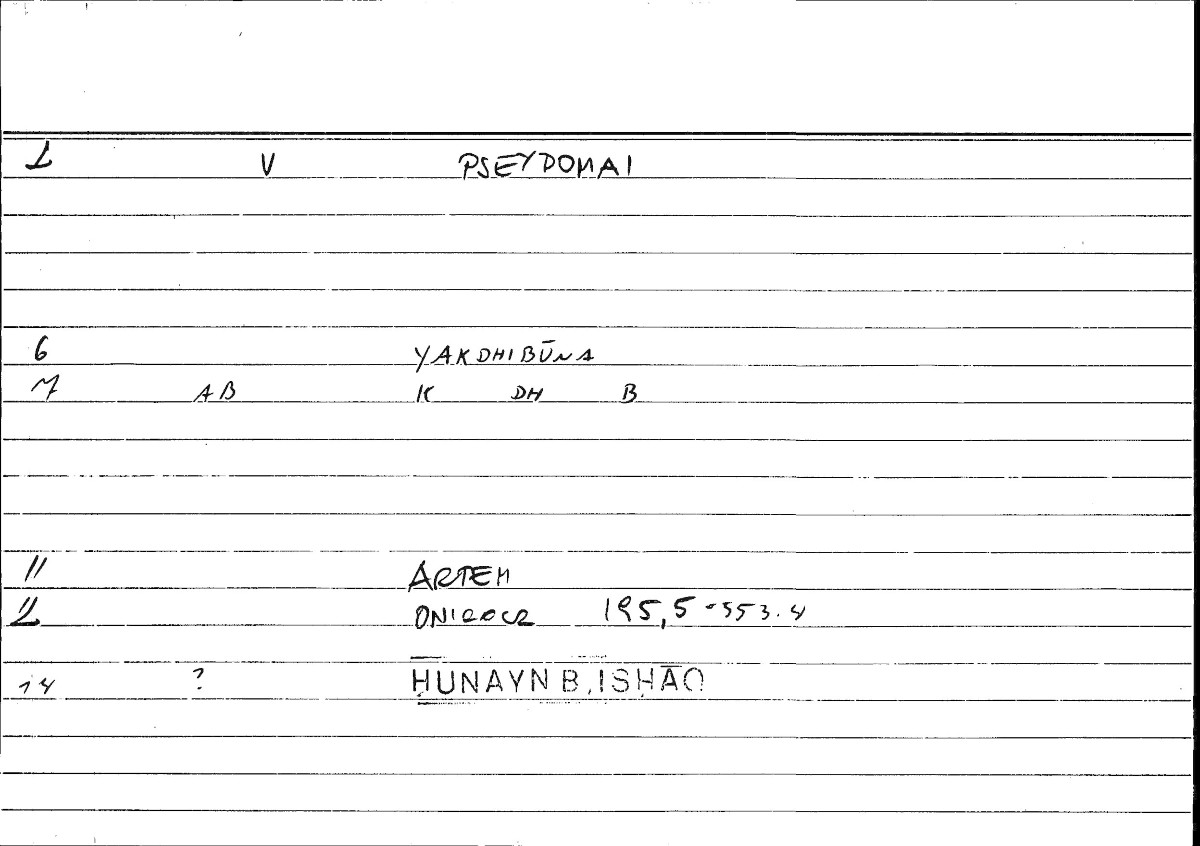 1 V PSEYDOMAI
6 YAKDHIBŪNA
7 AB K DH B
11 ARTEM
12 ONIROCR 195,5-353.4
14 ? ḤUNAYN B. ISḤĀQ